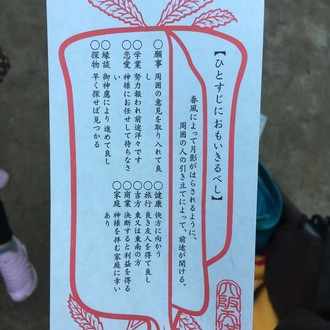 【ひとすじにおもいきるべし】
春風によって月影がはらされるように、
周囲の人の引き立てによって、前途が開ける。
○願事 周囲の意見を取り入れて良
し
○学業 努力報われ前途洋々です
○恋愛 神様にお任せして待ちなさ
い
○縁談 御神慮により進めて良し
○探物 早く探せば見つかる
○健康 快方に向かう
○旅行 良き友人を得て良し
○吉方 東又は東南の方
○商業 決断すると利益を得る
○家庭 神様を拝む家庭に幸い
あり